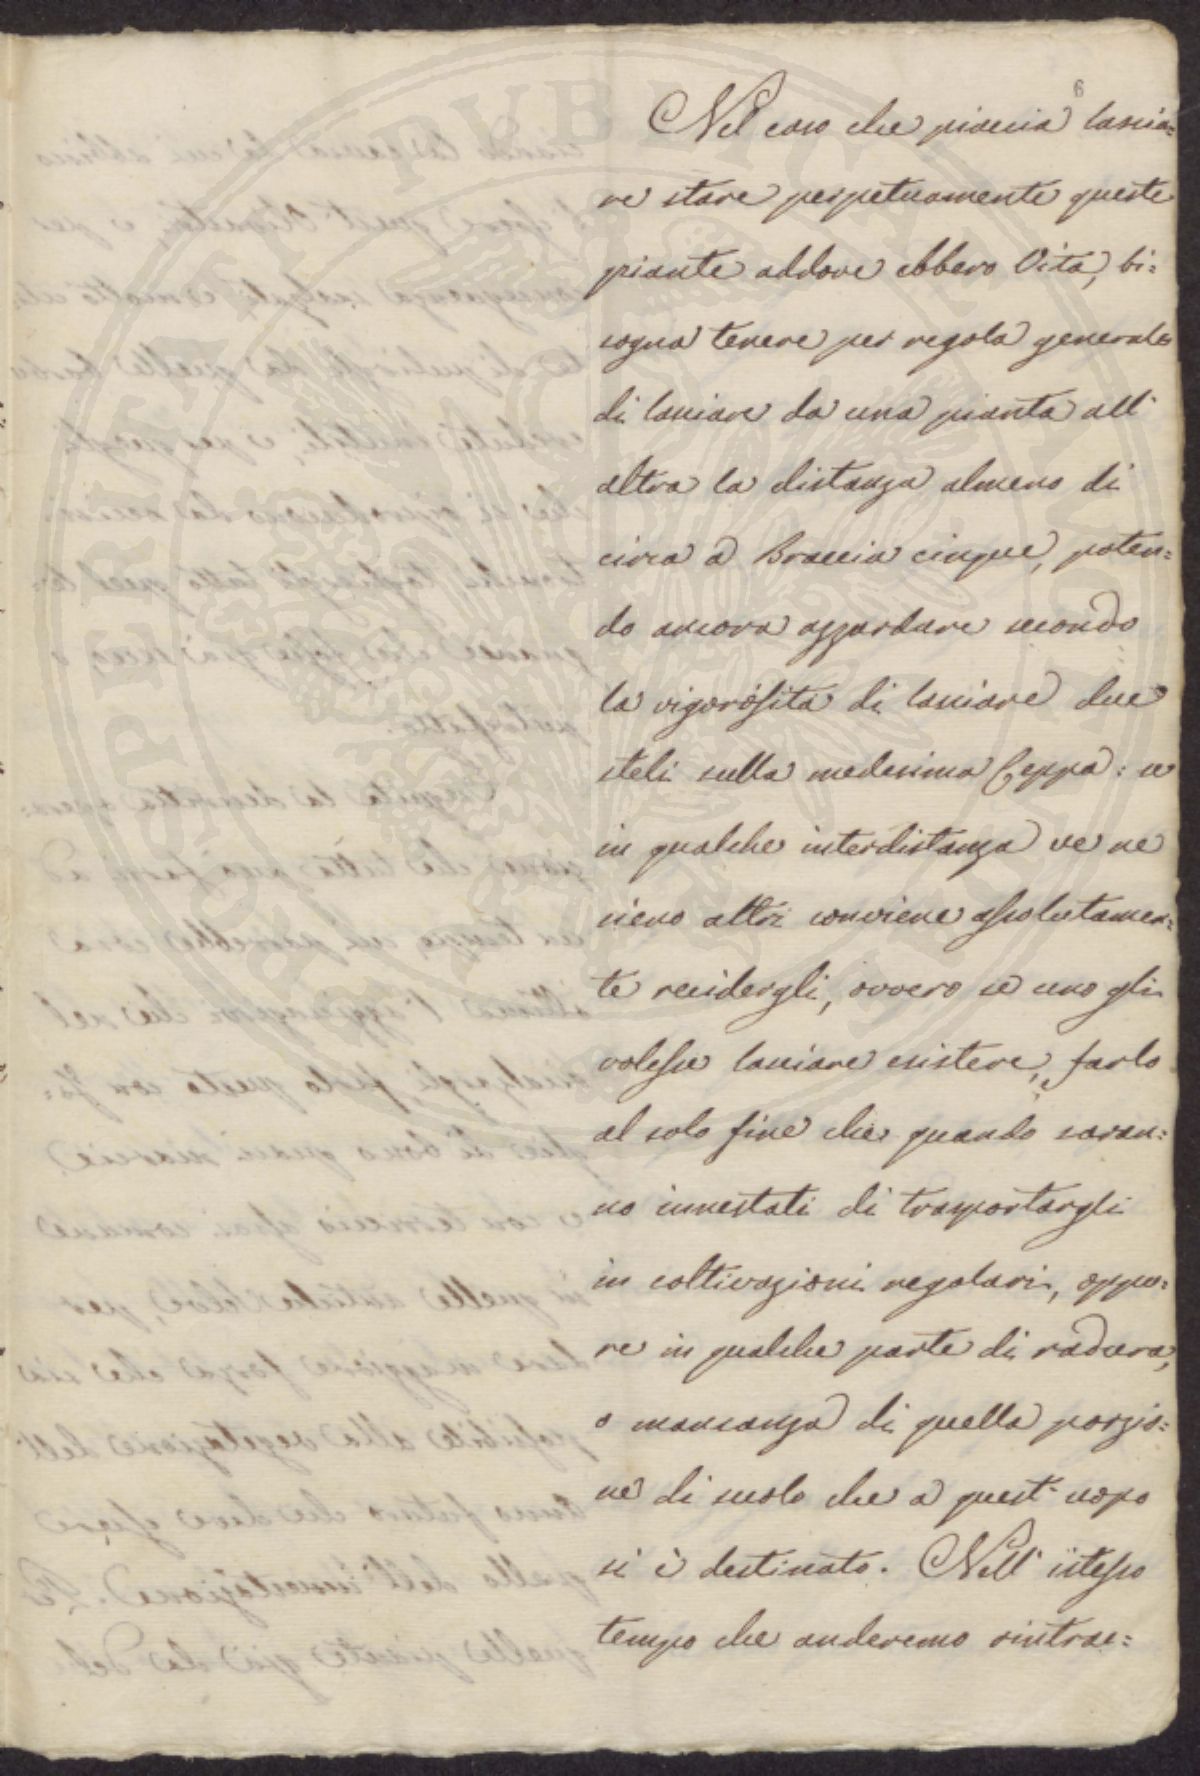 6
Nel caso che piaccia lascia=
re stare perpetuamente queste
piante addove ebbero Vita, bi=
sogna tenere per regola generale
di lasciare da una pianta all'
altra la distanza almeno di
circa a Braccia cinque, poten=
do ancora azzardare secondo
la vigorosità di lasciare due
steli sulla medesima Ceppa: se
in qualche interdistanza ve ne
sieno altri conviene assolutamen=
te recidergli, ovvero se uno gli
volesse lasciare esistere, farlo
al solo fine che quando saran=
no innestati di trasportargli
in coltivazioni regolari, oppu=
re in qualche parte di radura,
o mancanza di quella porzio=
ne di suolo che a quest' uopo
si è destinato. Nell' istesso
tempo che anderemo rintrac=